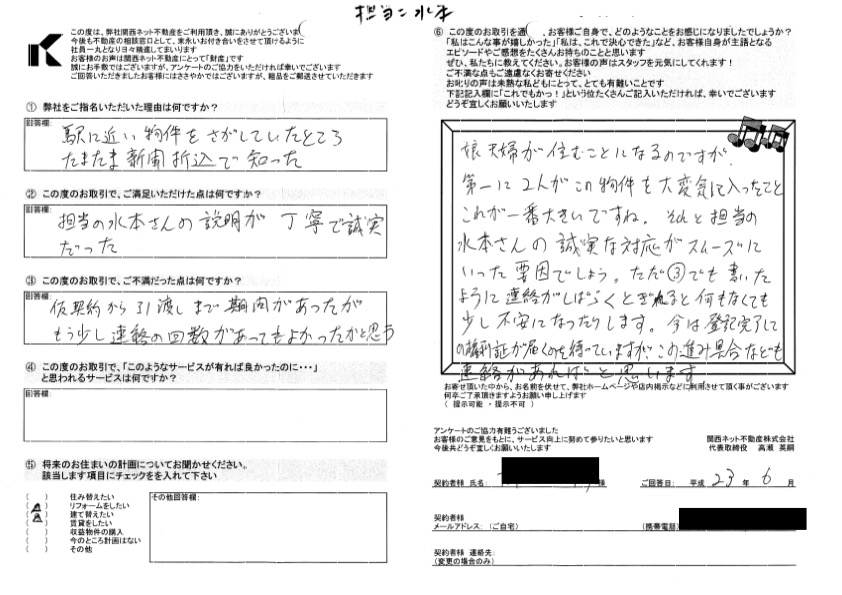 担当:水本
この度は、弊社関西ネット不動産をご利用頂き、誠にありがとうございます
今後も不動産の相談窓口として、末永いお付き合いをさせて頂けるように
社員一丸となり日々精進してまいります
お客様のお声は関西ネット不動産にとって「財産」です
誠にお手数ではございますが、アンケートのご協力をいただければ幸いでございます
ご回答いただきましたお客様にはささやかではございますが、粗品をご郵送させていただきます
① 弊社をご指名いただいた理由は何ですか?
回答欄:
駅に近い物件をさがしていたところ
たまたま新聞折込で知った
② この度のお取引で、ご満足いただけた点は何ですか?
回答欄:
担当の水本さんの説明が丁寧で誠実
だった
③ この度のお取引で、ご不満だった点は何ですか?
回答欄:
仮契約から引渡しまで期間があったが
もう少し連絡の回数があってもよかったかと思う
④ この度のお取引で、「このようなサービスが有れば良かったのに・・・」
と思われるサービスは何ですか?
回答欄:
⑤ 将来のお住まいの計画についてお聞かせください。
該当します項目にチェックをを入れて下さい
( ) 住み替えたい
( ) リフォームをしたい
( ) 建て替えたい
( ) 賃貸をしたい
( ) 収益物件の購入
( ) 今のところ計画はない
( ) その他
その他回答欄:
⑥ この度のお取引を通、お客様ご自身で、どのようなことをお感じになりましたでしょうか?
「私はこんな事が嬉しかった」「私は、これで決心できた」など、お客様自身が主語となる
エピソードやご感想をたくさんお持ちのことと思います
ぜひ、私たちに教えてください。お客様の声はスタッフを元気にしてくれます!
ご不満な点もご遠慮なくお寄せください
お叱りの声は未熟な私どもにとって、とても有難いことです
下記記入欄に「これでもかっ!」という位たくさんご記入いただければ、幸いでございます
どうぞ宜しくお願いいたします
娘夫婦が住むことになるのですが、
第一に2人がこの物件を大変気に入ったこと
これが一番大きいですね。それと担当の
水本さんの誠実な対応がスムーズに
いった要因でしょう。ただ③でも書いた
ように連絡がしばらくとぎれると何もなくても
少し不安になったりします。今は登記完了して
の権利証が届くのを待っていますが、この進み具合なども
連絡があればと思います
お寄せ頂いた中から、お名前を伏せて、弊社ホームページや店内掲示などに利用させて頂く事がございます
何卒ご了承頂きますようお願い申し上げます
( 提示可能 ・ 提示不可 )
アンケートのご協力有難うございました
お客様のご意見をもとに、サービス向上に努めて参りたいと思います
今後共どうぞ宜しくお願いいたします
関西ネット不動産株式会社
代表取締役 高瀬 英嗣
契約者様 氏名: 様
ご回答日: 平成 23 年 6 月
契約者様
メールアドレス: (ご自宅) (携帯電話)
契約者様 連絡先:
(変更の場合のみ)